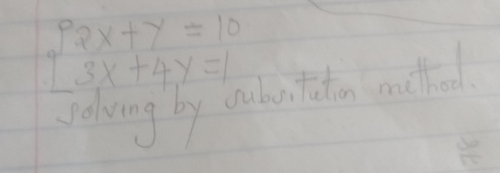 {2x+y=10
3x+4y=1
solving by subsitution method.